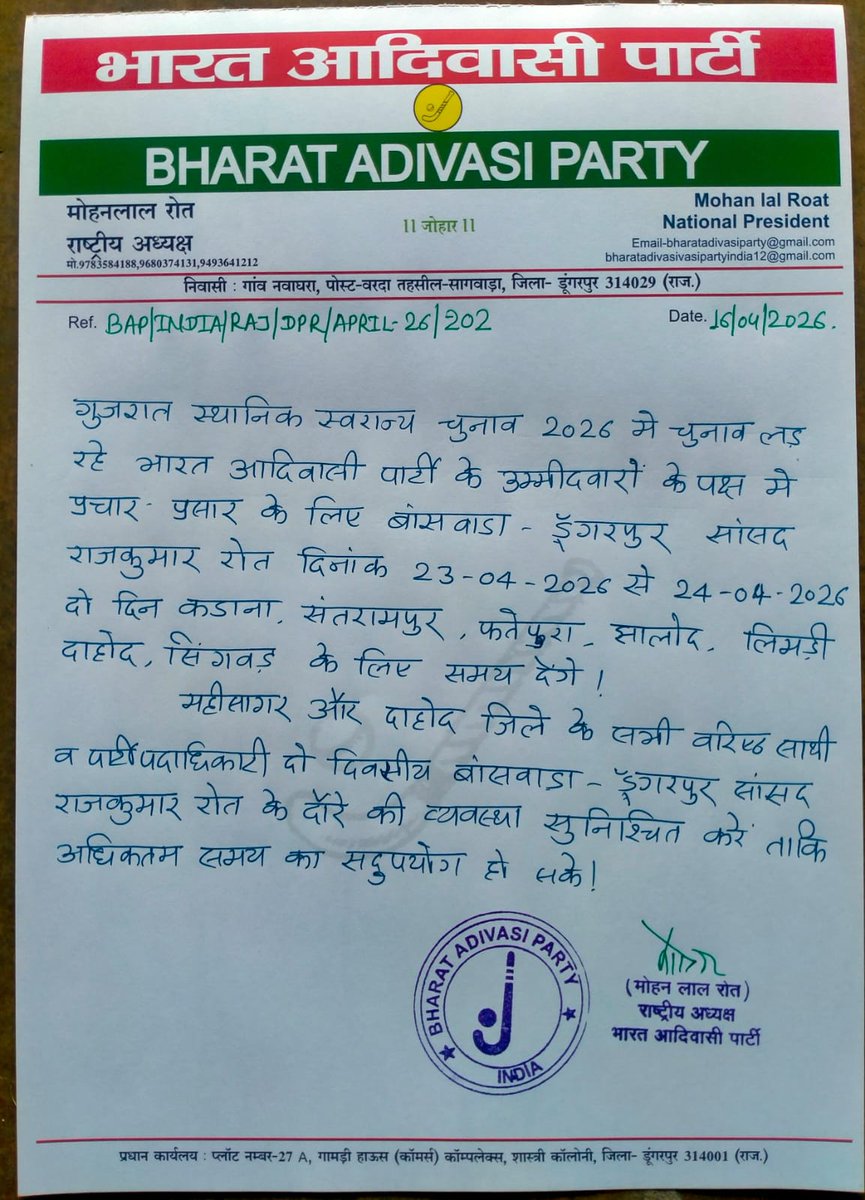 भारत आदिवासी पार्टी
BHARAT ADIVASI PARTY
मोहनलाल रोत
राष्ट्रीय अध्यक्ष
मो.9783584188,9680374131,9493641212
।। जोहार ।।
Mohan lal Roat
National President
Email-bharatadivasiparty@gmail.com
bharatadivasivasipartyindia12@gmail.com
निवासी : गांव नवाघरा, पोस्ट-वरदा तहसील-सागवाड़ा, जिला- डूंगरपुर 314029 (राज.)
Ref. BAP/INDIA/RAJ/DPR/APRIL-26/202
Date. 16/04/2026.
गुजरात स्थानिक स्वराज्य चुनाव 2026 मे चुनाव लड़
रहे भारत आदिवासी पार्टी के उम्मीदवारों के पक्ष मे
प्रचार-प्रसार के लिए बांसवाडा - डूंगरपुर सांसद
राजकुमार रोत दिनांक 23-04-2026 से 24-04-2026
दो दिन कडाना, संतरामपुर, फतेपुरा, झालोद, लिमड़ी
दाहोद, सिंगवड़ के लिए समय देंगे!
महीसागर और दाहोद जिले के सभी वरिष्ठ साथी
व पार्टी पदाधिकारी दो दिवसीय बांसवाडा - डूंगरपुर सांसद
राजकुमार रोत के दौरे की व्यवस्था सुनिश्चित करें ताकि
अधिकतम समय का सदुपयोग हो सके!
BHARAT ADIVASI PARTY
INDIA
(मोहन लाल रोत)
राष्ट्रीय अध्यक्ष
भारत आदिवासी पार्टी
प्रधान कार्यलय : प्लॉट नम्बर-27 A, गामड़ी हाऊस (कॉमर्स) कॉम्पलेक्स, शास्त्री कॉलोनी, जिला- डूंगरपुर 314001 (राज.)